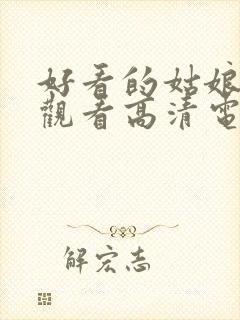 好看的姑娘
觀看高清電
解宏志